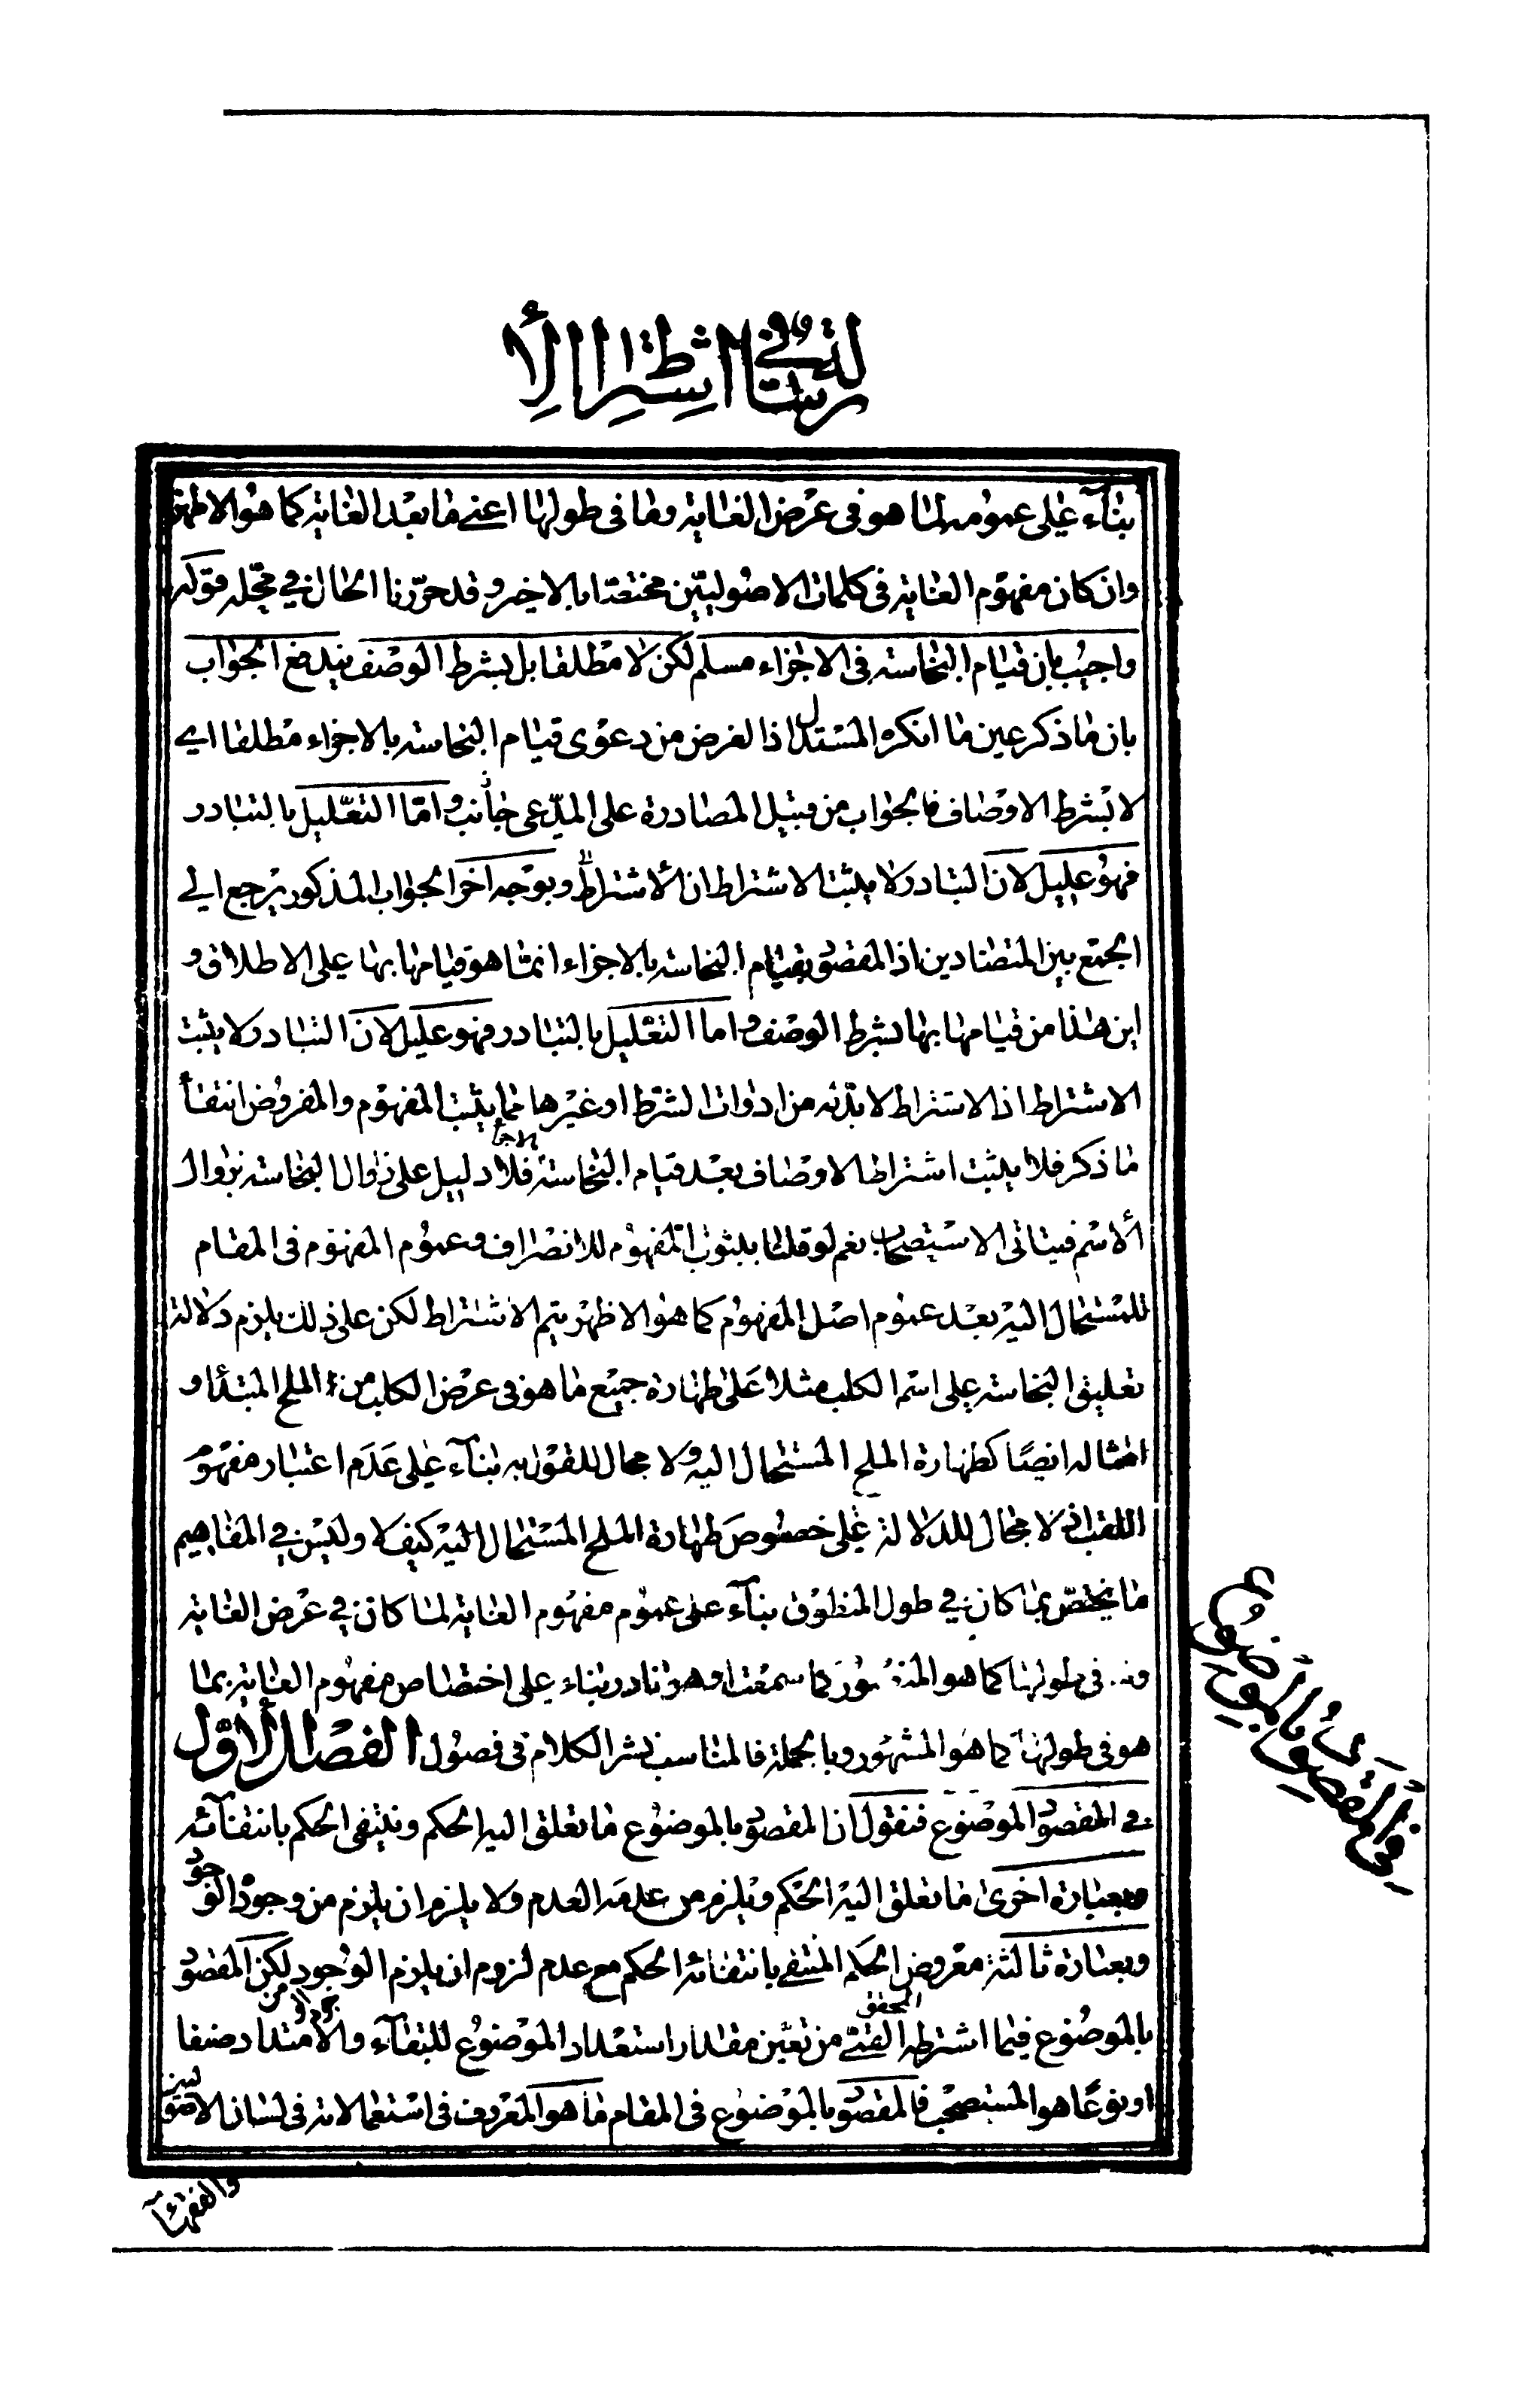 رسالة في اشتراط الأ
بناء على عمومه لما هو فى عرض الغاية وما فى طولها اعنى ما بعد الغاية كما هو الاظهر
وان كان مفهوم الغاية فى كلمات الاصوليين مختصا بالاخير وقد حررنا الحال في محله قوله
واجيب بان قيام النجاسة فى الاجزاء مسلم لكن لا مطلقا بل بشرط الوصف يندفع الجواب
بان ما ذكر عين ما انكره المستدل اذ الغرض من دعوى قيام النجاسة بالاجزاء مطلقا اى
لا بشرط الاوصاف فالجواب من قبيل المصادرة على المدعى جانب واما التعليل بالتبادر
فهو عليل لان التبادر لا يثبت الاشتراط ان الاشتراط وبوجه اخر الجواب المذكور يرجع الى
الجمع بين المتضادين اذ المقصود بقيام النجاسة بالاجزاء انما هو قيامها بها على الاطلاق و
اين هذا من قيامها بها بشرط الوصف واما التعليل بالتبادر فهو عليل لان التبادر لا يثبت
الاشتراط اذ الاشتراط لا بد له من ادوات الشرط او غيرها مما يثبت المفهوم والمفروض انتفاء
ما ذكر فلا يثبت اشتراط الاوصاف بعد قيام النجاسة بالاجزاء فلا دليل على زوال النجاسة بزوال
الاسم فيتاتى الاستصحاب نعم لو قلنا بثبوت المفهوم للانصراف وعموم المفهوم فى المقام
للمستحال اليه بعد عموم اصل المفهوم كما هو الاظهر يتم الاشتراط لكن على ذلك يلزم دلالة
تعليق النجاسة على اسم الكلب مثلا على طهارة جميع ما هو فى عرض الكلب من الملح المبتدأ و
امثاله ايضا كطهارة الملح المستحال اليه ولا مجال للقول به بناء على عدم اعتبار مفهوم
اللقب اذ لا مجال للدلالة على خصوص طهارة الملح المستحال اليه كيف لا وليس في المفاهيم
ما يختص بما كان في طول المنطوق بناء على عموم مفهوم الغاية لما كان في عرض الغاية
وما فى طولها كما هو المنصور كما سمعت او هو نادر بناء على اختصاص مفهوم الغاية بما
هو فى طولها كما هو المشهور وبالجملة فالمناسب نشر الكلام فى فصول الفصل الاول
فى المقصود بالموضوع فنقول ان المقصود بالموضوع ما تعلق اليه الحكم وينتفى الحكم بانتفائه
وبعبارة اخرى ما تعلق اليه الحكم ويلزم من عدمه العدم ولا يلزم ان يلزم من وجوده الوجود
وبعبارة ثالثة معروض الحكم المنتفى بانتفائه الحكم مع عدم لزوم ان يلزم الوجود لكن المقصود من
بالموضوع فيما اشترطه المحقق القمى من تعين مقدار استعداد الموضوع للبقاء والامتداد صنفا
او نوعا هو المستصحب فالمقصود بالموضوع فى المقام ما هو المعروف فى استعمالاته فى لسان الاصوليين
والفقهاء
فى المقصود بالموضوع